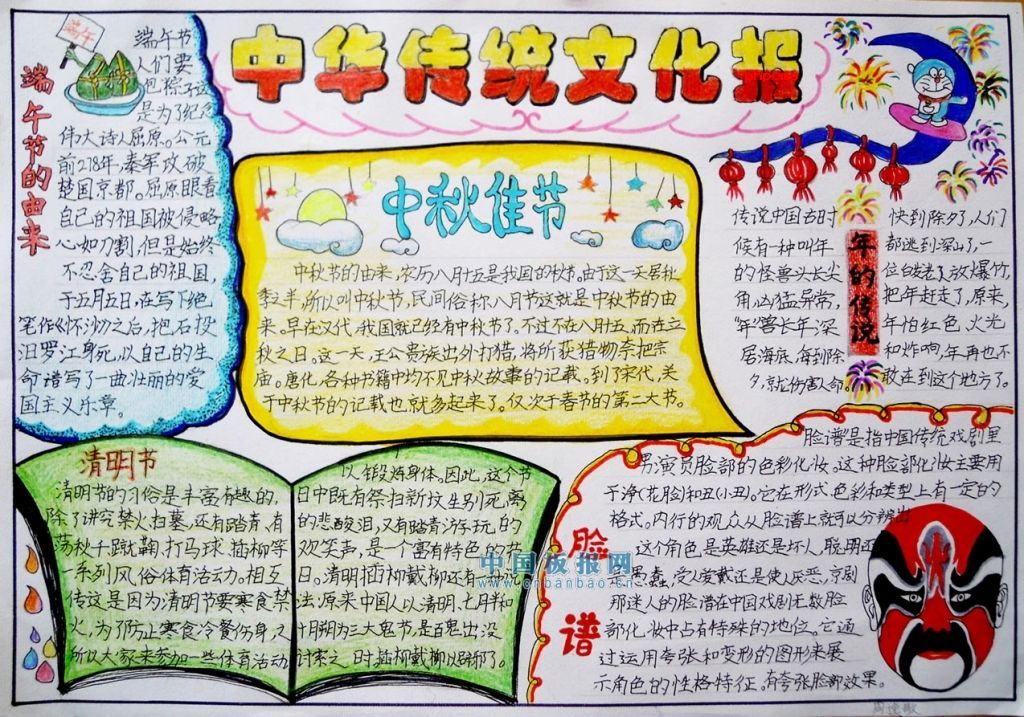 中华传统文化报
端午
端午节的由来
端午节
人们要
包粽子
是为了纪念
伟大诗人屈原。公元
前278年,秦军攻破
楚国京都。屈原眼看
自己的祖国被侵略
心如刀割,但是始终
不忍舍自己的祖国,
于五月五日,在写下绝
笔作《怀沙》之后,抱石投
汨罗江身死,以自己的生
命谱写了一曲壮丽的爱
国主义乐章。
中秋佳节
中秋节的由来,农历八月十五是我国的秋节。由于这一天居秋
季之半,所以叫中秋节,民间俗称八月节这就是中秋节的由
来。早在汉代,我国就已经有中秋节了。不过不在八月十五,而在立
秋之日。这一天,王公贵族出外打猎,将所获猎物祭把宗
庙。唐化,各种书籍中均不见中秋故事的记载。到了宋代,关
于中秋节的记载也就多起来了。仅次于春节的第二大节。
年的传说
传说中国古时
候有一种叫年
的怪兽头长尖
角,凶猛异常,
“年”兽长年深
居海底,每到除
夕,就伤害人命。
快到除夕了,人们
都逃到深山了,一
位白发老人放爆竹,
把年赶走了,原来,
年怕红色、火光
和炸响,年再也不
敢在到这个地方了。
清明节
清明节的习俗是丰富有趣的,
除了讲究禁火扫墓,还有踏青、荡
荡秋千、蹴鞠、打马球、插柳等
一系列风俗体育活动。相互
传这是因为清明节要寒食禁
火,为了防止寒食冷餐伤身,
所以大家来参加一些体育活动
以锻炼身体。因此,这个节
日中既有祭扫新坟生别死离
的悲酸泪,又有踏青游玩的
欢笑声,是一个富有特色的节
日。清明插柳戴柳还有一种说
法:原来中国人以清明、七月半和
十月朔为三大鬼节,是百鬼出没
讨索之时,插柳戴柳以辟邪了。
脸谱
“脸谱”是指中国传统戏剧里
男演员脸部的色彩化妆。这种脸部化妆主要用
于净(花脸)和丑(小丑)。它在形式、色彩和类型上有一定的
格式。内行的观众从脸谱上就可以分辨出
这个角色是英雄还是坏人,聪明还
是愚蠢,受人爱戴还是使人厌恶,京剧
那迷人的脸谱在中国戏剧无数脸
部化妆中占有特殊的地位。它通
过运用夸张和变形的图形来展
示角色的性格特征。有夸张脸部效果。
中国板报网
www.cnbanbao.cn